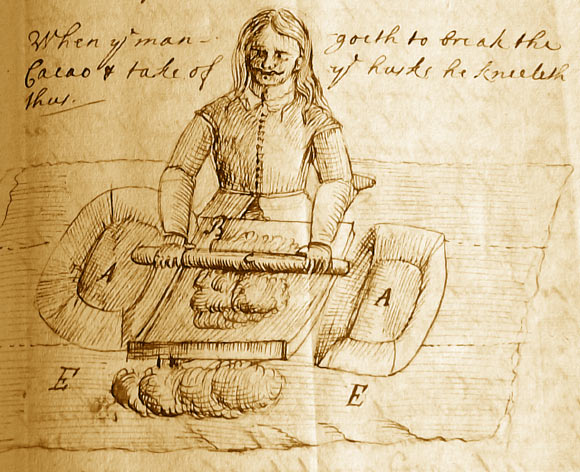 When ye man – goeth to break the
Cacao & take of ye husks he kneeleth
thus.
B
A A
E E